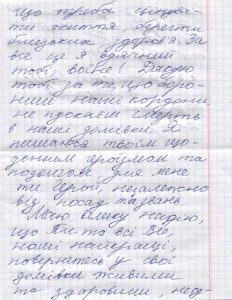 що треба цінува-
ти життя, берегти
близьких здоров'я. За
все це я вдячний
тобі, воїне! Дякую
тобі за те, що боро-
ниш наші кордони,
не пускаєш смерть
в наші домівки. Я
пишаюся твоїм що-
денним героїзмом та
подвигом, для мене
ти Герой, незалежно
від посад та звань.
Маю велику надію,
що Ти та всі Ви,
наші найкращі,
повернетесь у свої
домівки живими
та здоровими, неде-